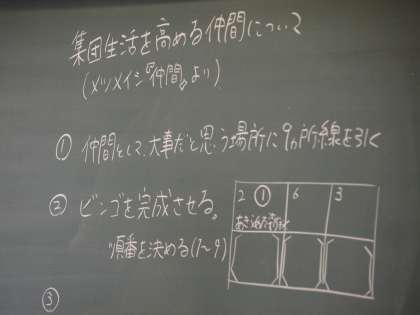 集団生活を高める仲間について
(メツメイシ『仲間』より)
① 仲間として、大事だと思う場所に9ヵ所線を引く
② ビンゴを完成させる。
順番を決める(1〜9)
2 ① 6 3
③